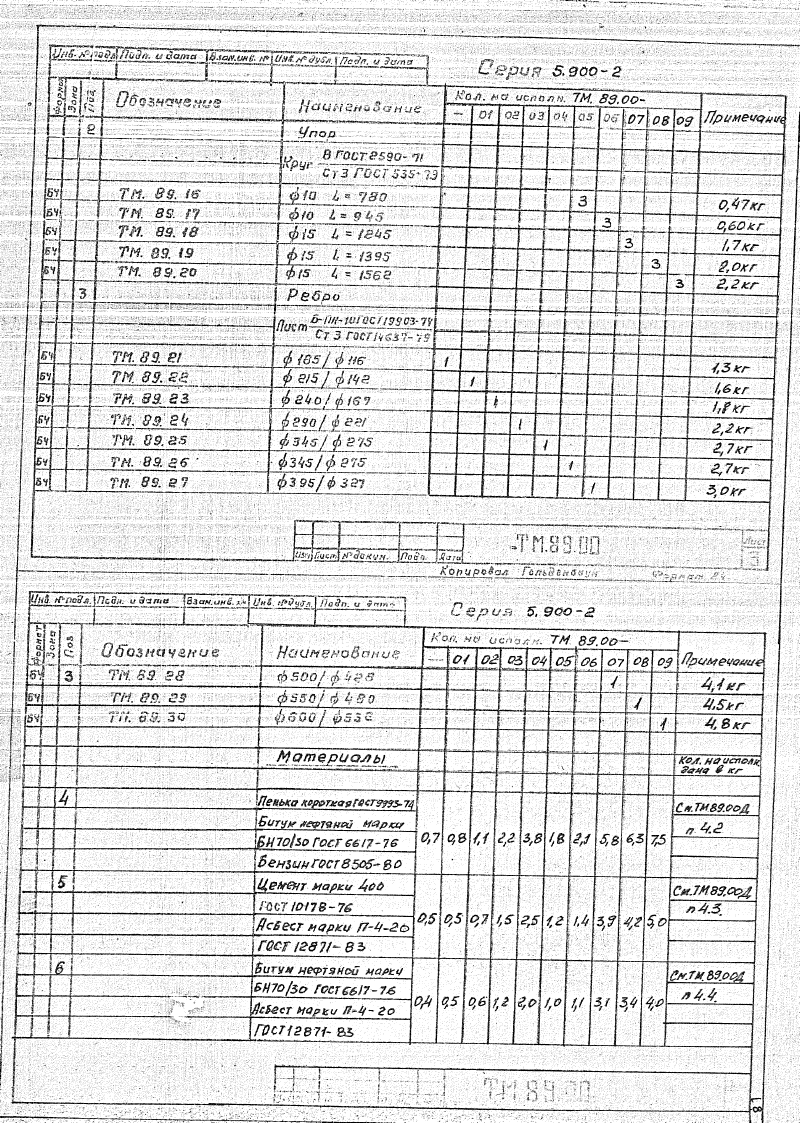 Инв. № подл. Подп. и дата Взам. инв. № Инв. № дубл. Подп. и дата
Серия 5.900-2
Формат Зона Поз. Обозначение Наименование Кол. на исполн. ТМ. 89.00- Примечание
— 01 02 03 04 05 06 07 08 09
2 Упор
Круг В ГОСТ 2590-71
Ст3 ГОСТ 535-79
БЧ ТМ. 89. 16 ϕ10 L = 780 3 0,47кг
БЧ ТМ. 89. 17 ϕ10 L = 945 3 0,60кг
БЧ ТМ. 89. 18 ϕ15 L = 1245 3 1,7кг
БЧ ТМ. 89. 19 ϕ15 L = 1395 3 2,0кг
БЧ ТМ. 89.20 ϕ15 L = 1562 3 2,2кг
3 Ребро
Лист Б-ПН-10 ГОСТ 19903-74
Ст 3 ГОСТ 14637-79
БЧ ТМ. 89. 21 ϕ185/ϕ116 1 1,3кг
БЧ ТМ. 89. 22 ϕ215/ϕ142 1 1,6кг
БЧ ТМ. 89. 23 ϕ240/ϕ167 1 1,8кг
БЧ ТМ. 89. 24 ϕ290/ϕ221 1 2,2кг
БЧ ТМ. 89. 25 ϕ345/ϕ275 1 2,7кг
БЧ ТМ. 89. 26 ϕ345/ϕ275 1 2,7кг
БЧ ТМ. 89. 27 ϕ395/ϕ327 1 3,0кг
ТМ.89.00 Лист
3
Изм Лист № докум. Подп. Дата
Копировал Формат
Инв. № подл. Подп. и дата Взам. инв. № Инв. № дубл. Подп. и дата
Серия 5.900-2
Формат Зона Поз. Обозначение Наименование Кол. на исполн. ТМ 89.00- Примечание
— 01 02 03 04 05 06 07 08 09
БЧ 3 ТМ. 89. 28 ϕ500/ϕ428 1 4,1кг
БЧ ТМ. 89. 29 ϕ550/ϕ480 1 4,5кг
БЧ ТМ. 89. 30 ϕ600/ϕ530 1 4,8кг
Материалы Кол. на исполн.
дана в кг
4 Пенька короткая ГОСТ 9993-74 См. ТМ89.00Д
Битум нефтяной марки п 4.2
БН70/30 ГОСТ 6617-76 0,7 0,8 1,1 2,2 3,8 1,8 2,1 5,8 6,3 7,5
Бензин ГОСТ 8505-80
5 Цемент марки 400 См. ТМ89.00Д
ГОСТ 10178-76 п 4.3.
Асбест марки П-4-20 0,5 0,5 0,7 1,5 2,5 1,2 1,4 3,9 4,2 5,0
ГОСТ 12871-83
6 Битум нефтяной марки См. ТМ. 89.00Д
БН70/30 ГОСТ 6617-76 п 4.4.
Асбест марки П-4-20 0,4 0,5 0,6 1,2 2,0 1,0 1,1 3,1 3,4 4,0
ГОСТ 12871-83
ТМ 89.00
18